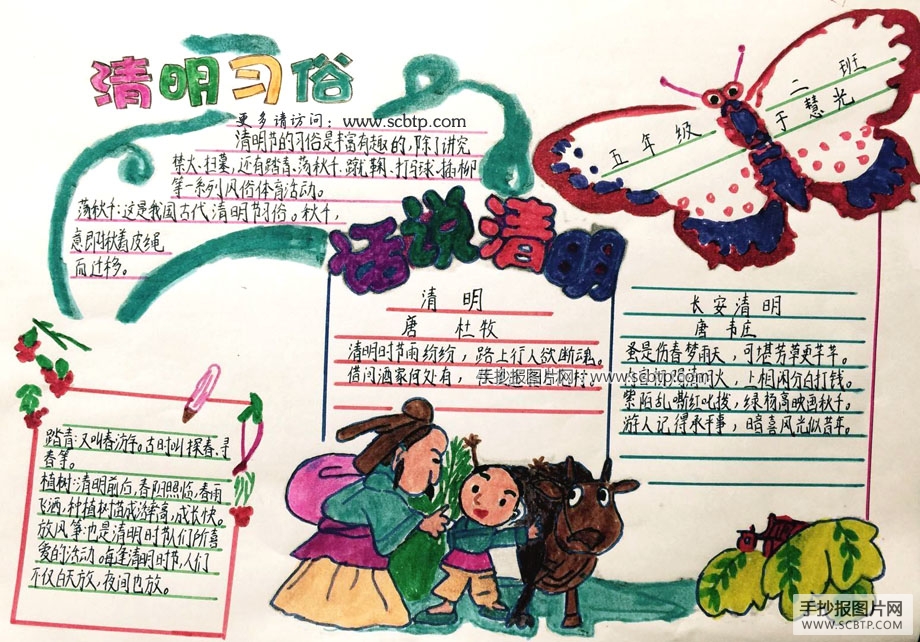 清明习俗
更多请访问：www.scbtp.com
清明节的习俗是丰富有趣的，除了讲究
禁火、扫墓，还有踏青、荡秋千、蹴鞠、打马球、插柳
等一系列风俗体育活动。
荡秋千：这是我国古代清明节习俗。秋千，
意即揪着皮绳
而迁移。
五年级二班
于慧光
话说清明
清明
唐 杜牧
清明时节雨纷纷，路上行人欲断魂。
借问酒家何处有，
手抄报图片网：www.scbtp.com
村
长安清明
唐 韦庄
蚤是伤春梦雨天，可堪芳草更芊芊。
火，上相闲分白打钱。
紫陌乱嘶红叱拨，绿杨高映画秋千。
游人记得承平事，暗喜风光似昔年。
踏青：又叫春。古时叫探春、寻
春等。
植树：清明前后，春阳照临，春雨
飞洒，种植树苗成活率高，成长快。
放风筝也是清明时节人们所喜
爱的活动。每逢清明时节，人们
不仅白天放，夜间也放。
手抄报图片网
WWW.SCBTP.COM